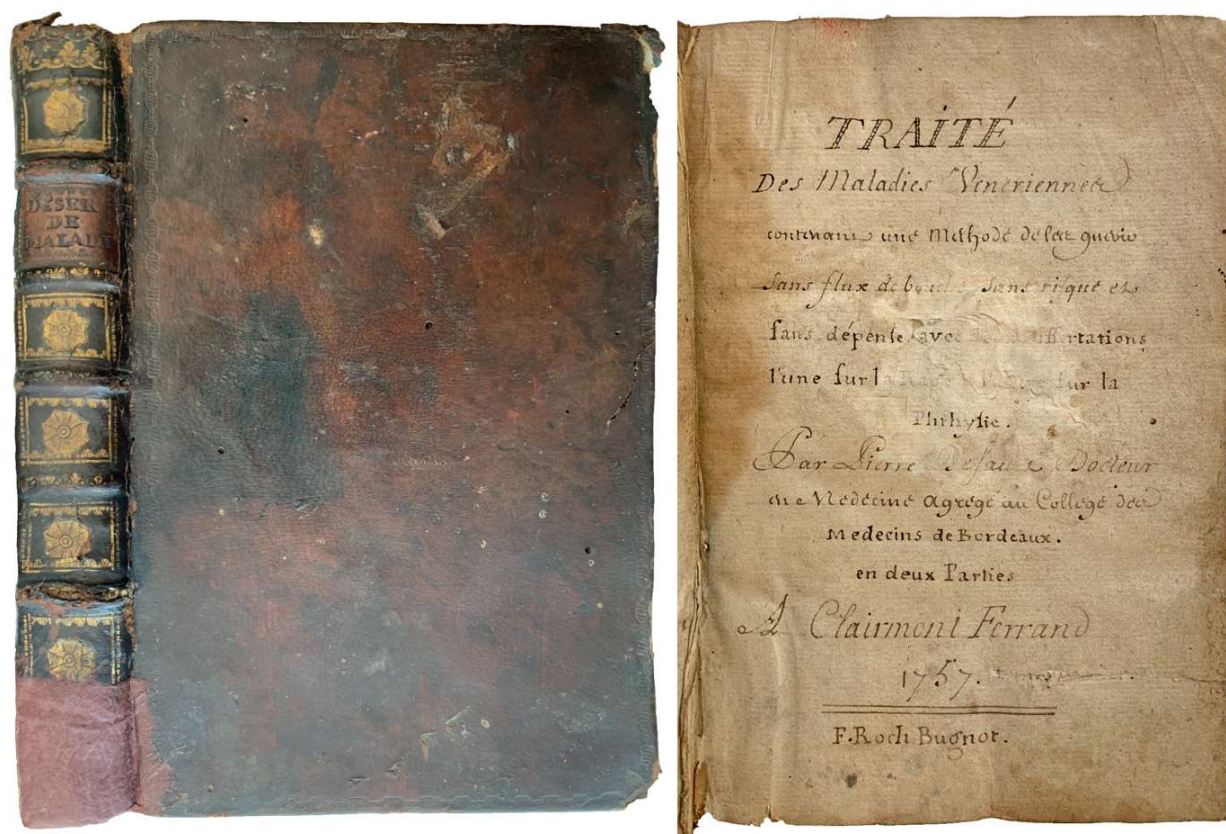 DESER
DE
MALADI
TRAITÉ
Des Maladies Veneriennes
contenant une Methode de les guerir
Sans flux de bouche, Sans risque et
sans dépense avec dissertations
l'une sur la sur la
Phthysie.
Par Pierre Desault Docteur
en Medecine Agrégé au College des
Medecins de Bordeaux.
en deux Parties
A Clairmont Ferrand
1757.
F. Roch Bugnot.